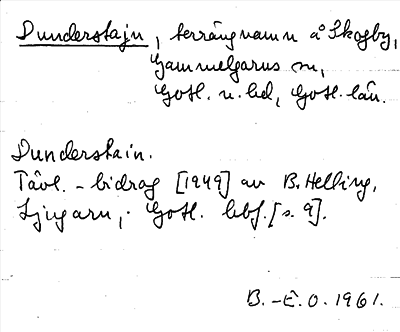 Dunderstajn, terrängnamn å Skogby,
Gammelgarns sn,
Gotl. n. hd, Gotl. län.
Dunderstain.
Tävl.-bidrag [1949] av B. Helling,
Ljugarn, Gotl. lbf. [s. 9].
B.-E. O. 1961.